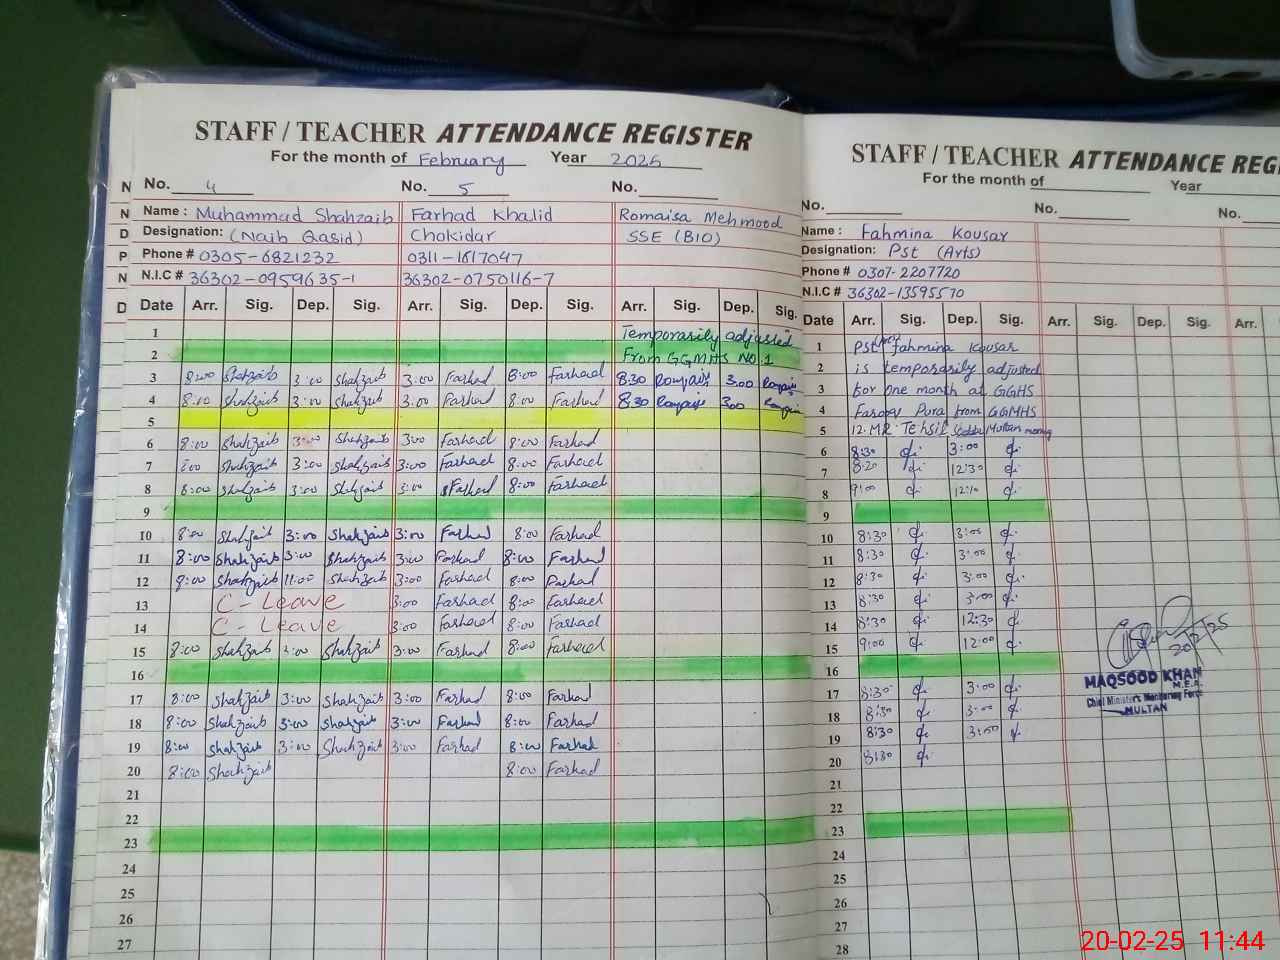 STAFF / TEACHER ATTENDANCE REGISTER
For the month of February Year 2025
No. 4 No. 5 No.
Name : Muhammad Shahzaib Farhad Khalid Romaisa Mehmood
Designation: (Naib Qasid) Chokidar SSE (BIO)
Phone # 0305-6821232 0311-1617047
N.I.C # 36302-0959635-1 36302-0750116-7
Date Arr. Sig. Dep. Sig. Arr. Sig. Dep. Sig. Arr. Sig. Dep. Sig.
1 Temporarily adjusted
2 From GGMHS NO 1
3 8:00 Shahzaib 3:00 Shahzaib 3:00 Farhad 8:00 Farhad 8:30 3:00
4 8:00 Shahzaib 3:00 Shahzaib 3:00 Farhad 8:00 Farhad 8:30 300
5
6 8:00 Shahzaib 3:00 Shahzaib 3:00 Farhad 8:00 Farhad
7 8:00 Shahzaib 3:00 Shahzaib 3:00 Farhad 8:00 Farhad
8 8:00 Shahzaib 3:00 Shahzaib 3:00 Farhad 8:00 Farhad
9
10 8:00 Shahzaib 3:00 Shahzaib 3:00 Farhad 8:00 Farhad
11 8:00 Shahzaib 3:00 Shahzaib 3:00 Farhad 8:00 Farhad
12 8:00 Shahzaib 11:00 Shahzaib 3:00 Farhad 8:00 Farhad
13 C - Leave 3:00 Farhad 8:00 Farhad
14 C - Leave 3:00 Farhad 8:00 Farhad
15 8:00 Shahzaib Shahzaib 3:00 Farhad 8:00 Farhad
16
17 8:00 Shahzaib 3:00 Shahzaib 3:00 Farhad 8:00 Farhad
18 8:00 Shahzaib 3:00 Shahzaib 3:00 Farhad 8:00 Farhad
19 8:00 Shahzaib 3:00 Shahzaib 3:00 Farhad 8:00 Farhad
20 8:00 Shahzaib 8:00 Farhad
21
22
23
24
25
26
27
STAFF / TEACHER ATTENDANCE REG
For the month of Year
No. No. No.
Name : Fahmina Kousar
Designation: Pst (Arts)
Phone # 0307-2207720
N.I.C # 36302-13595570
Date Arr. Sig. Dep. Sig. Arr. Sig. Dep. Sig. Arr.
1 PST Fahmina Kousar
2 is temporarily adjusted
3 for one month at GGHS
4 Farooq Pura from GGMHS
5 12.MR Tehsil Multan
6 8:30 3:00
7 8:20 12:30
8 9:00 12:10
9
10 8:30 3:00
11 8:30 3:00
12 8:30 3:00
13 8:30 3:00
14 8:30 12:30
15 9:00 12:00
16
17 8:30 3:00
18 8:30 3:00
19 8:30 3:00
20 8:30
21
22
23
24
25
26
27
28
MAQSOOD KHAN
M.E.A.
Chief Minister's Monitoring Force
MULTAN
20-02-25 11:44